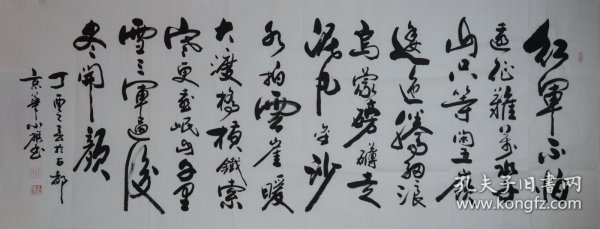 紅軍不怕
遠征難万水千
山只等閑五嶺
逶迤騰細浪
烏蒙磅礴走
泥丸金沙
水拍雲崖暖
大渡橋横鐵索
寒更喜岷山千里
雪三軍過後
尽開顔
丁酉春於古都
京華書
孔夫子旧书网
www.kongfz.com